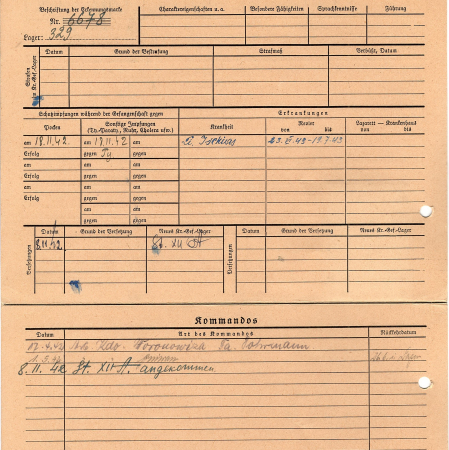 Beschriftung der Erkennungsmarke
Nr. 6678
Lager: 329
Charaktereigenschaften u. a.
Besondere Fähigkeiten
Sprachkenntnisse
Führung
Strafen im Kr.-Gef.-Lager
Datum
Grund der Bestrafung
Strafmaß
Verbüßt, Datum
Schutzimpfungen während der Gefangenschaft gegen
Erkrankungen
Pocken
Sonstige Impfungen
(Ty.-Paraty., Ruhr, Cholera usw.)
Krankheit
Revier
von bis
Lazarett — Krankenhaus
von bis
am 18.11.42
am 18.11.42
Ischias
23.VI.43-19.7.43
Erfolg
gegen Ty
am
am
Erfolg
gegen
am
am
Erfolg
gegen
am
gegen
Versetzungen
Datum
Grund der Versetzung
Neues Kr.-Gef.-Lager
8.11.42
St. XII A
Versetzungen
Datum
Grund der Versetzung
Neues Kr.-Gef.-Lager
Kommandos
Datum
Art des Kommandos
Rückkehrdatum
Kdo. Woronowiza Fa.
8.11.42 St. XII A. angekommen